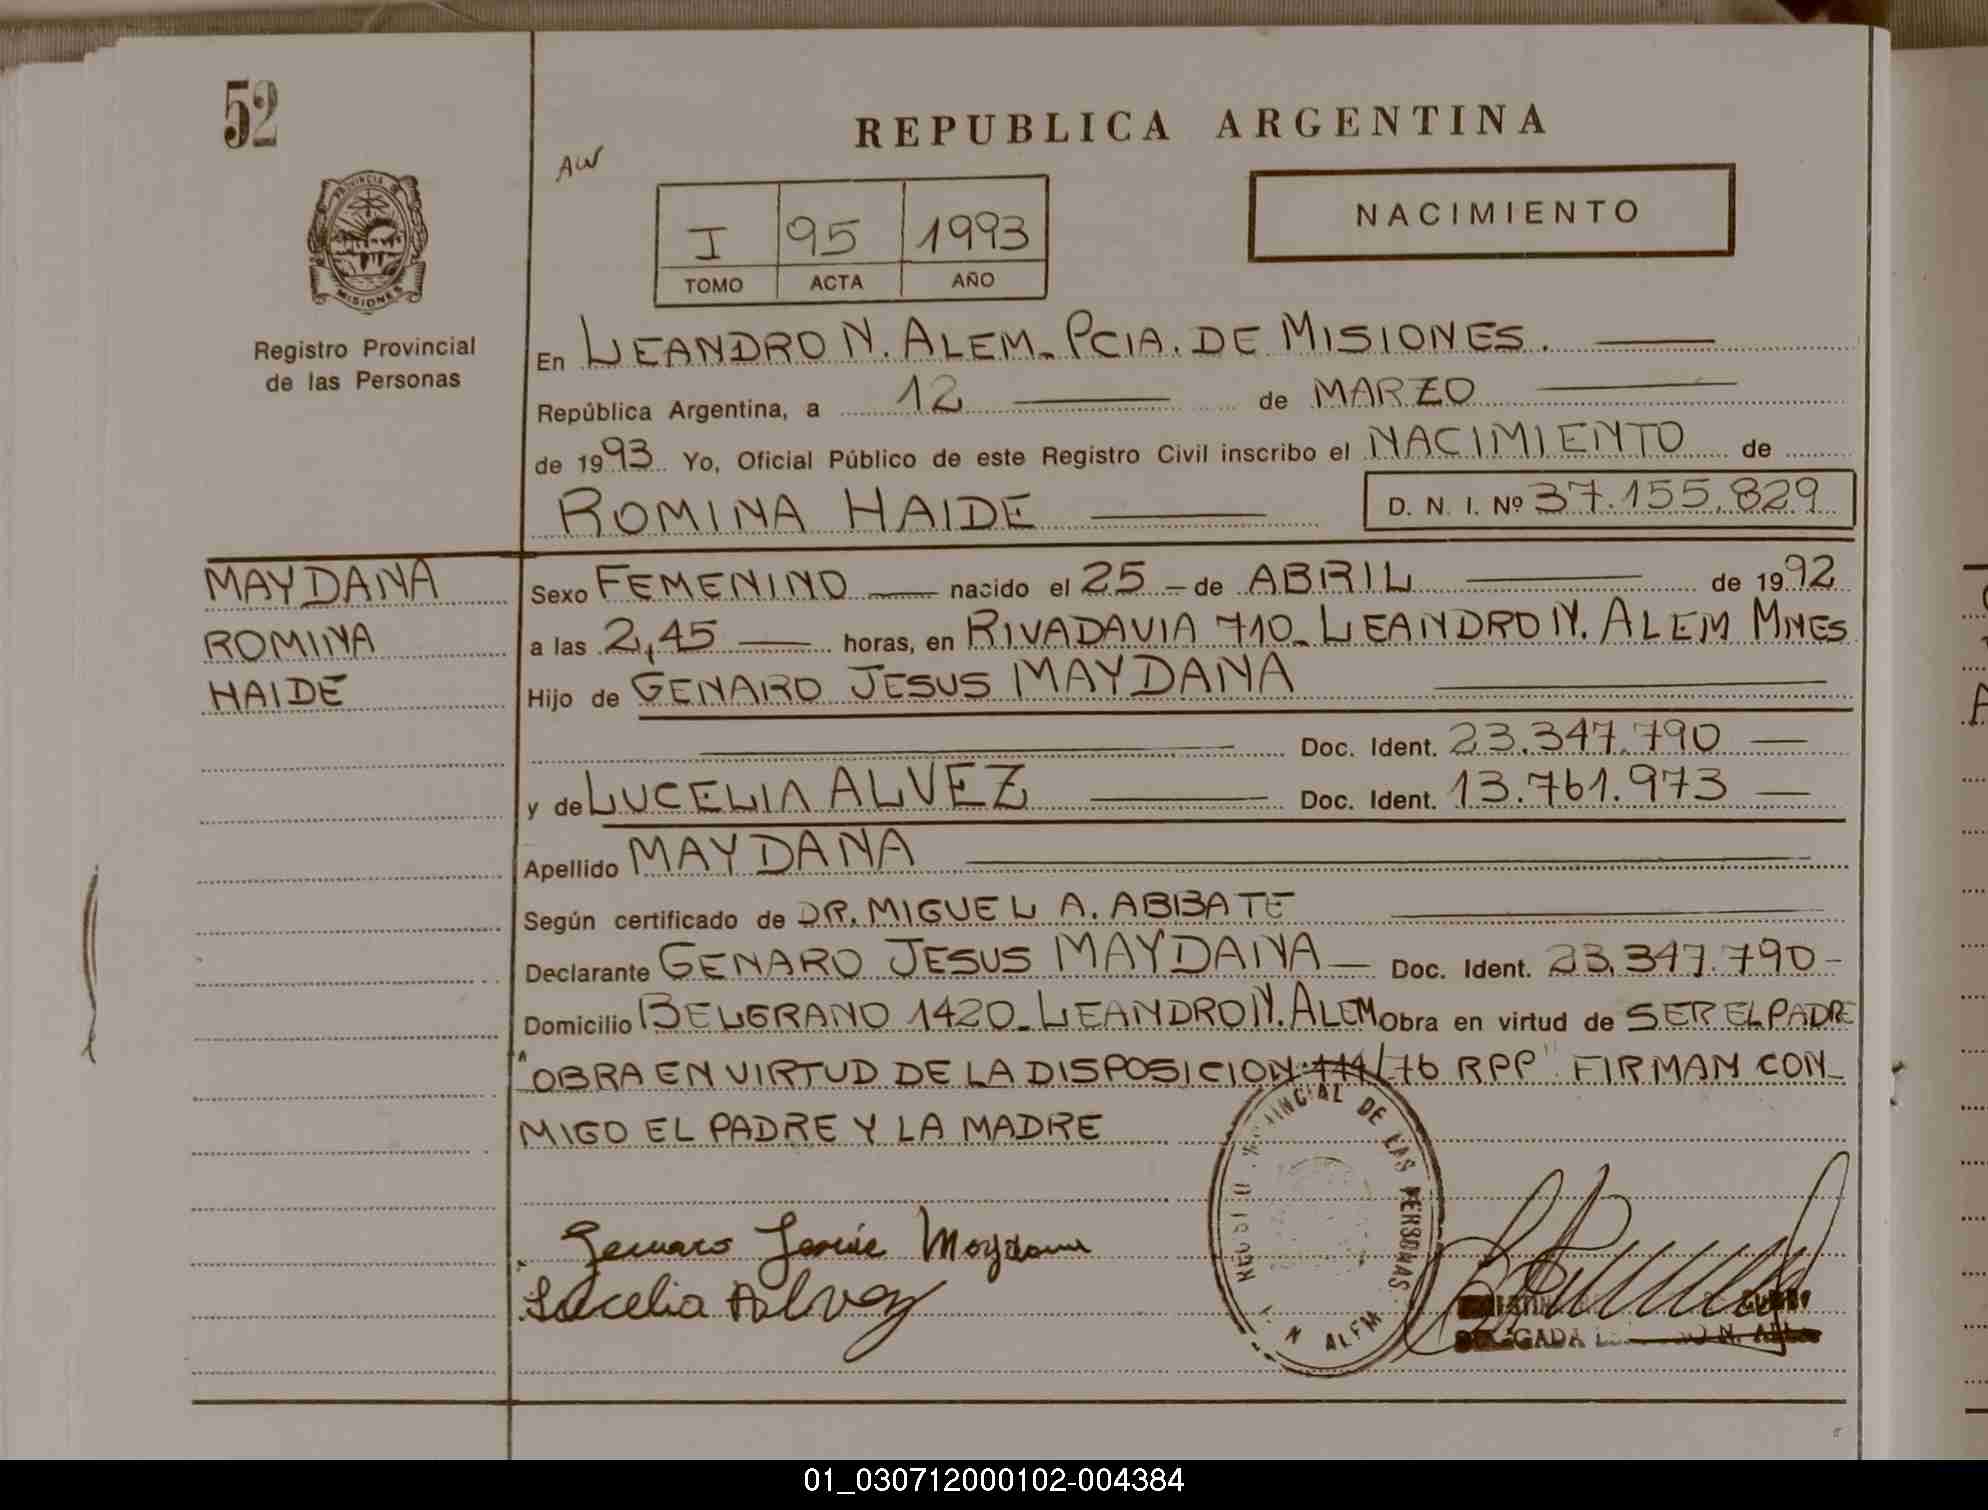 52
REPUBLICA ARGENTINA
AW
NACIMIENTO
I 95 1993
TOMO ACTA AÑO
PROVINCIA DE
MISIONES
Registro Provincial
de las Personas
En LEANDRO N. ALEM_ PCIA. DE MISIONES.
República Argentina, a 12 de MARZO
de 1993 Yo, Oficial Público de este Registro Civil inscribo el NACIMIENTO de
ROMINA HAIDE D. N. I. Nº 37.155.829
MAYDANA
ROMINA
HAIDE
Sexo FEMENINO nacido el 25 - de ABRIL de 1992
a las 2,45 horas, en RIVADAVIA 710_ LEANDRO N. ALEM MNES
Hijo de GENARO JESUS MAYDANA
Doc. Ident. 23.347.790
y de LUCELIA ALVEZ Doc. Ident. 13.761.973
Apellido MAYDANA
Según certificado de DR. MIGUEL A. ABBATE
Declarante GENARO JESUS MAYDANA Doc. Ident. 23.347.790-
Domicilio BELGRANO 1420_ LEANDRO N. ALEM Obra en virtud de SER EL PADRE
"OBRA EN VIRTUD DE LA DISPOSICION: 111/76 RPP" FIRMAN CON_
MIGO EL PADRE Y LA MADRE
DE LAS PERSONAS
N ALEM
Genaro Jesús Maydana
Lucelia Alvez
DELEGADA
01_030712000102-004384